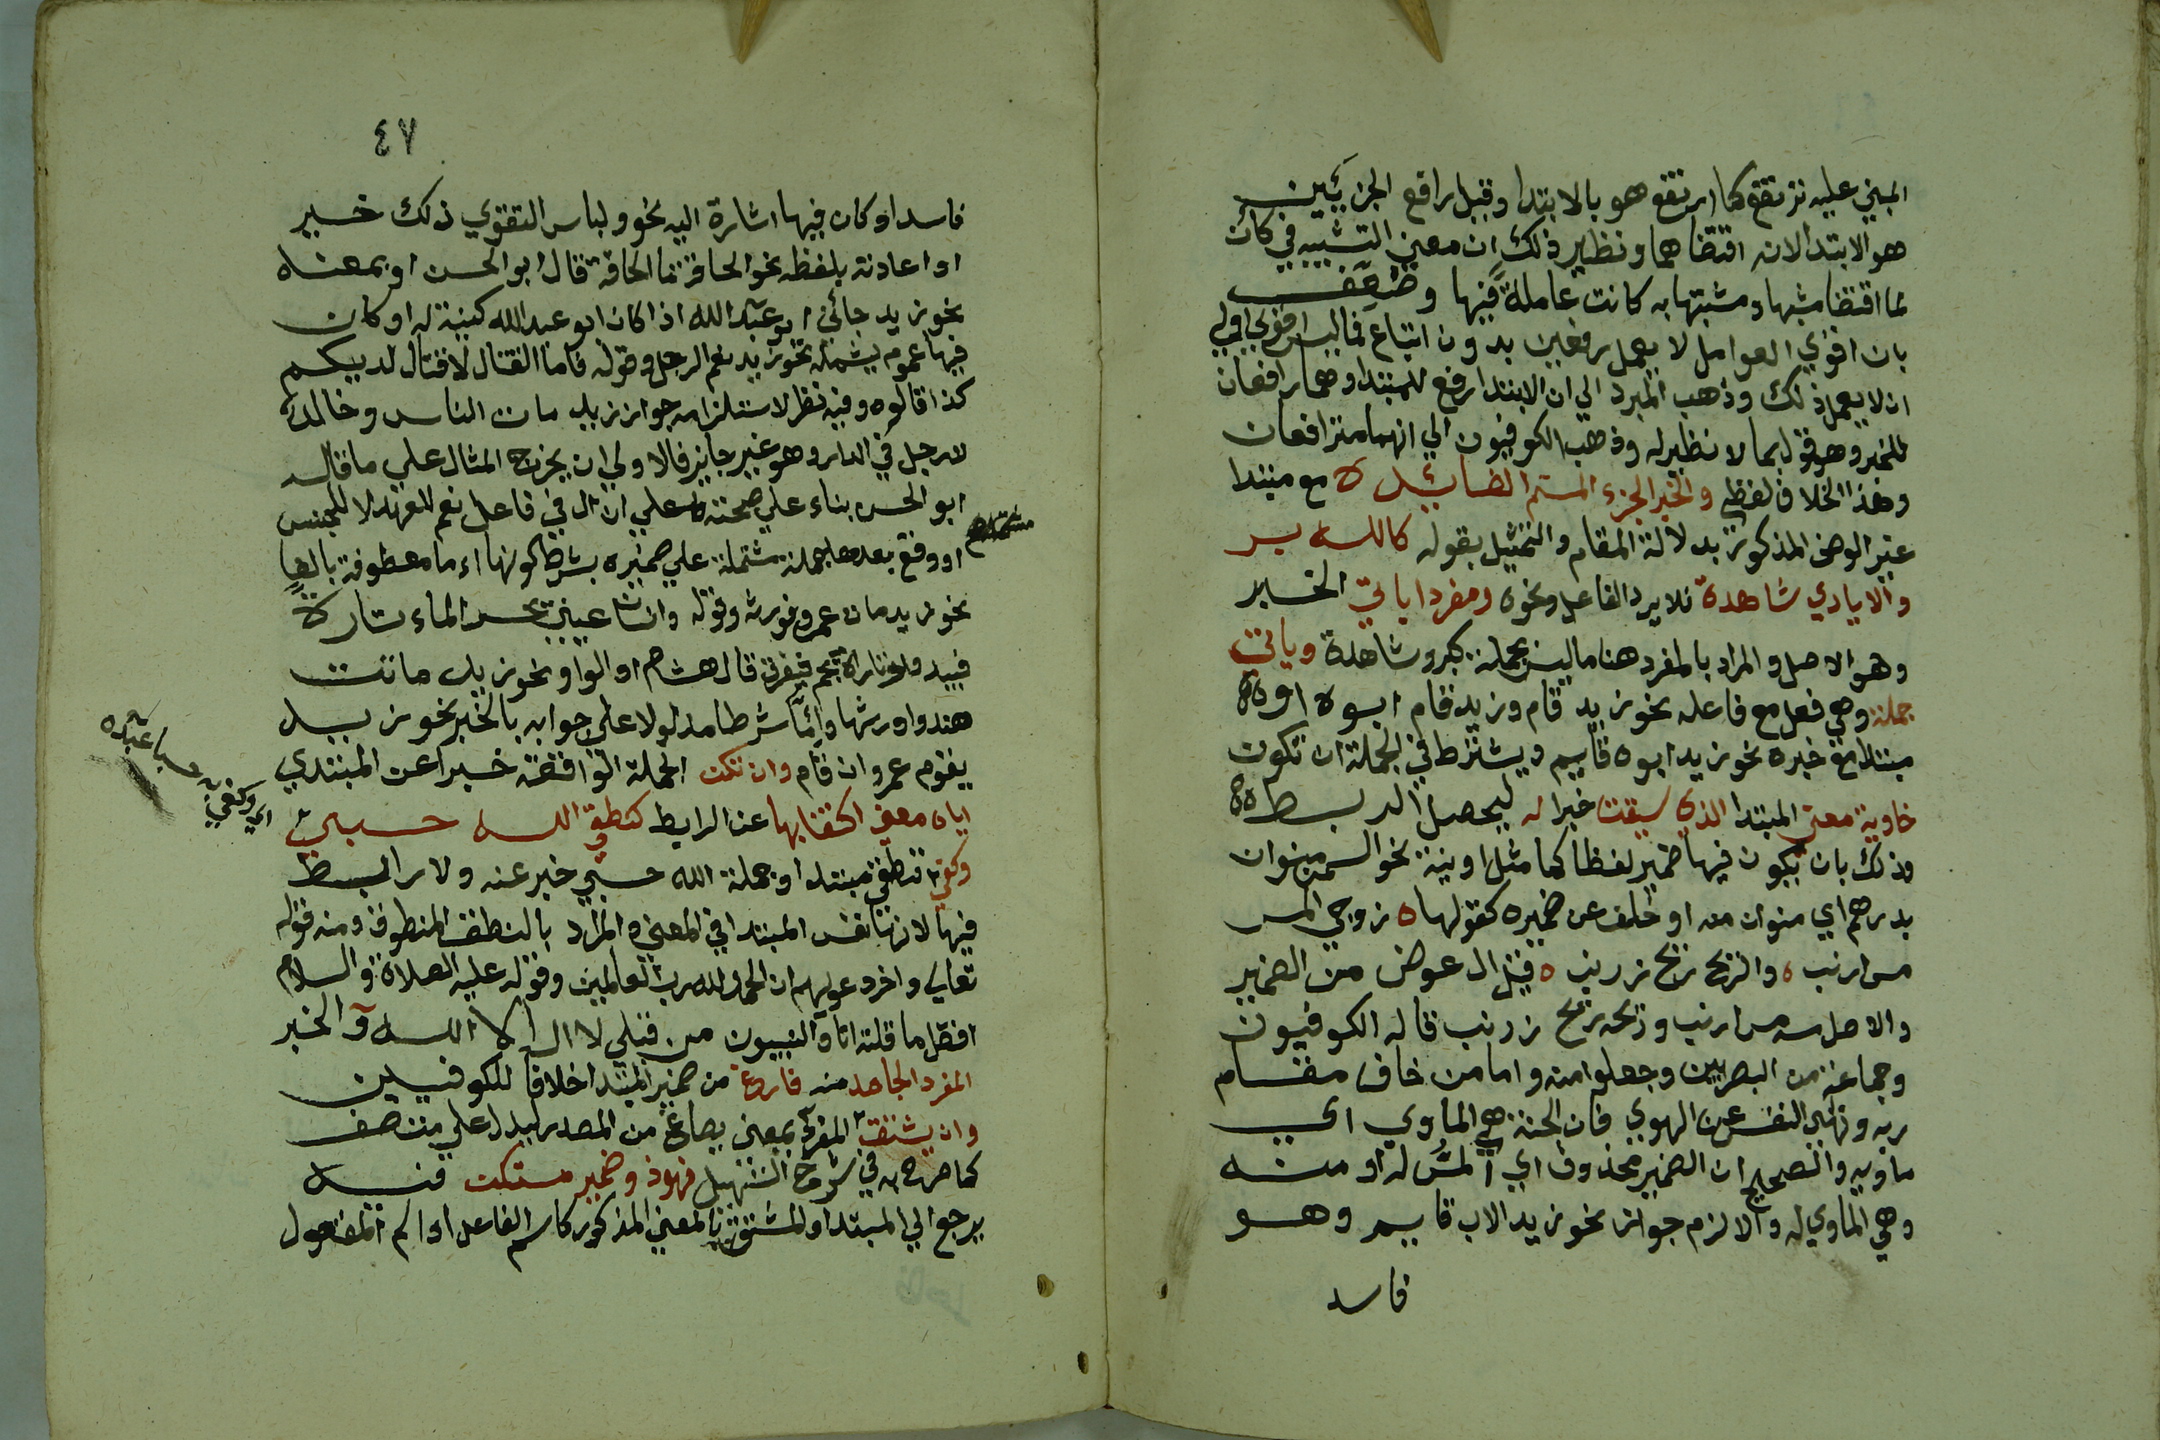 المبني عليه ترتفع كما ارتفع هو بالابتدا وقيل رافع الجزئين
هو الابتدا لانه اقتضاهما ونظير ذلك ان معني التشبيه في كأن
لما اقتضا مشبها ومشبها به كانت عاملة فيها وضعف
بان اقوي العوامل لا يعمل رفعين بدون اتباع فما ليس اقوي اولي
ان لا يعمل ذلك وذهب المبرد الي ان الابتدا رافع للمبتدا وهما رافعان
للخبر وهو قول بما لا نظير له وذهب الكوفيون الي انهما مترافعان
وهذا الخلاف لفظي والخبر الجزء المتم الفائده مع مبتدا
غير الوصف المذكور بدلالة المقام والتمثيل بقوله كالله بر
والايادي شاهدة فلا يرد الفاعل ونحوه ومفردا ياتي الخبر
وهو الاصل والمراد بالمفرد هنا ما ليس بجملة كبر وشاهدة وياتي
جملة وهي فعل مع فاعله نحو زيد قام وزيد قام ابوه او
مبتدا مع خبره نحو زيد ابوه قايم ويشترط في الجملة ان تكون
حاوية معني المبتدا الذي سيقت خبرا له ليحصل الربط
وذلك بان يكون فيها ضمير لفظا كما مثل او نية نحو السمن منوان
بدرهم اي منوان منه او خلف عن ضميره كقولها ه زوجي المس
مس ارنب ه والريح ريح زرنب ه قيل ال عوض من الضمير
والاصل مسه مس ارنب وريحه ريح زرنب قاله الكوفيون
وجماعة من البصريين وجعلوا منه واما من خاف مقام
ربه ونهي النفس عن الهوي فان الجنة هي الماوي اي
ماويه والصحيح ان الضمير محذوف اي المس له او منه
وهي الماوي له والا لزم جواز نحو زيد الاب قايم وهو
فاسد
٤٧
فاسد او كان فيها اشارة اليه نحو ولباس التقوي ذلك خير
او اعادته بلفظه نحو الحاقة ما الحاقة قال ابو الحسن او بمعناه
نحو زيد جائني ابو عبد الله اذا كان ابو عبد الله كنية له او كان
فيها عموم يشمله نحو زيد نعم الرجل وقوله فاما القتال لا قتال لديكم
كذا قالوه وفيه نظر لاستلزامه جواز زيد مات الناس وخالد
لا رجل في الدار وهو غير جايز فالاولي ان يخرج المثال علي ما قاله
ابو الحسن بناء علي صحته علي ان ال في فاعل نعم للعهد لا للجنس
او وقع بعدها جملة مشتملة علي ضميره بشرط كونها اما معطوفة بالفا
نحو زيد مات عمرو فورثه وقوله وانسان عيني يحسر الماء تارة
فيبدو وتارات يجم فيغرق قال هشام او الواو نحو زيد ماتت
هند وورثها وإمّا شرطا مدلولا علي جوابه بالخبر نحو زيد
يقوم عمرو ان قام وان تكن الجملة الواقعة خبرا عن المبتدي
اياه معني اكتفا بها عن الرابط كنطقي الله حسبي
وكفي فنطقي مبتدا وجملة الله حسبي خبر عنه ولا رابط
فيها لانها نفس المبتدا في المعني والمراد بالنطق المنطوق ومنه قوله
تعالي واخر دعواهم ان الحمد لله رب العالمين وقوله عليه الصلاة والسلام
افضل ما قلته انا والنبيون من قبلي لا اله الا الله والخبر
المفرد الجامد منه فارغ من ضمير المبتدا خلافا للكوفيين
وان يشتق المفرد بمعني يصاغ من المصدر ليدل علي متصف
كما صرح به في شرح التسهيل فهو ذو ضمير مستكن فيه
يرجع الي المبتدا والمشتق بالمعني المذكور كاسم الفاعل واسم المفعول